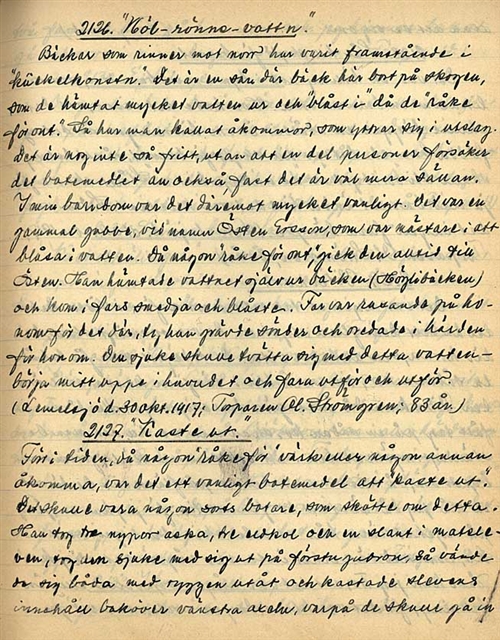 2126. "Nôl-rönne-vattn."
Bäckar som rinner mot norr har varit framstående i
"kückelkonstn. Det är en sån där bäck här bort på skogen,
som de hämtat mycket vatten ur och "blåst i" då de "råke
för ont." Så har man kallat åkommor, som yttrar sig i utslag.
Det är nog inte så fritt, utan att en del personer försöker
det botemedlet än också, fast det är väl mera sällan.
I min barndom var det däremot mycket vanligt. Det var en
gammal gubbe, vid namn Östen Ersson, som var mästare i att
blåsa i vatten. Då någon "råke för ont", gick den alltid till
Östen. Han hämtade vattnet själv ur bäcken
och kom i fars smedja och blåste. Far var rasande på ho-
nom för det där, ty han grävde sönder och oredade i härden
för honom. Den sjuke skulle tvätta sig med detta vatten-
börja mitt uppe i huvudet och fara utför och utför.
(Lemesjö d. 30 okt. 1917; Torparen Ol. Strömgren; 83 år.)
2127. "Kaste ut."
Förr i tiden, då någon "råke för" värk eller någon annan
åkomma, var det ett vanligt botemedel att "kaste ut".
Det skulle vara någon sorts botare, som skötte om detta.
Han tog tre nypor aska, tre eldkol och en slant i matsle-
ven, tog den sjuke med sig ut på förstugubron, så vände
de sig båda med ryggen utåt och kastade slevens
innehåll baköver vänstra axeln, varpå de skulle gå in